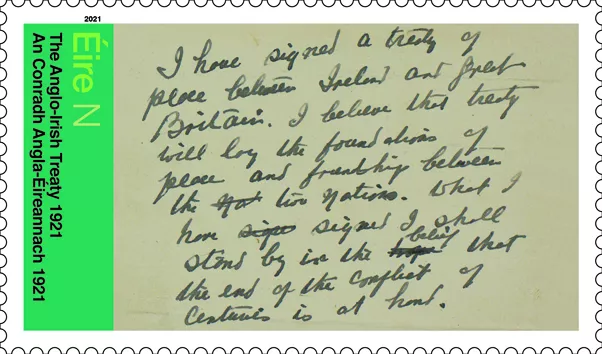 2021
Éire N
The Anglo-Irish Treaty 1921
An Conradh Angla-Éireannach 1921
I have signed a treaty of
peace between Ireland and Great
Britain. I believe that treaty
will lay the foundations of
peace and friendship between
the Nat two Nations. What I
have sign signed I shall
stand by in the hope belief that
the end of the conflict of
Centuries is at hand.